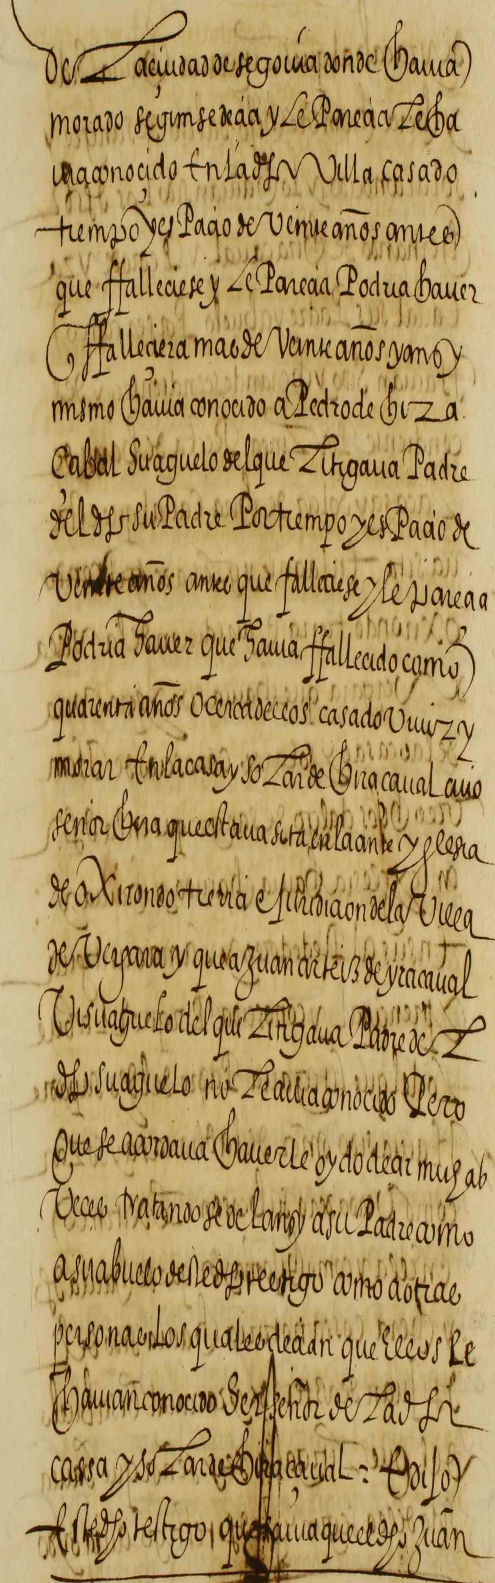 de la ciudad de segovia donde havia
morado segun se decia y le Parecia le ha
via conocido en la dha Villa casado
tiempo y esPacio de Veinte años antes
que ffalleciese y le Parecia Podria haver
ffalleciera mas de Veinte años y ansy
mismo havia conocido a Pedro de hirza
Cabal su aguelo del que litigava Padre
del dho su Padre Por tiempo y esPacio de
Veinte años antes que falleciese y le parecia
Podria haver que havia ffallecido como
quarenta años o cerca dellos casado Vivir y
morar en la casa y solar de hiracaval cuio
señor hera que estava sita en la ante yglesia
de oxirondo juridicion de la Villa
de Vergara y que a Juan orteiz de yracaval
Visaguelo del que litigava Padre del
dho su aguelo no le avia conocido Pero
que se acordava haverle oydo decir muchas
Veces tratandose de lo ansy a su Padre como
a su abuelo deste dho testigo como a otras
personas los quales decian que ellos le
havian conocido Ser señor de la dha
cassa y solar de hiracaval = E dijo
este dho testigo que savia que el dho Juan